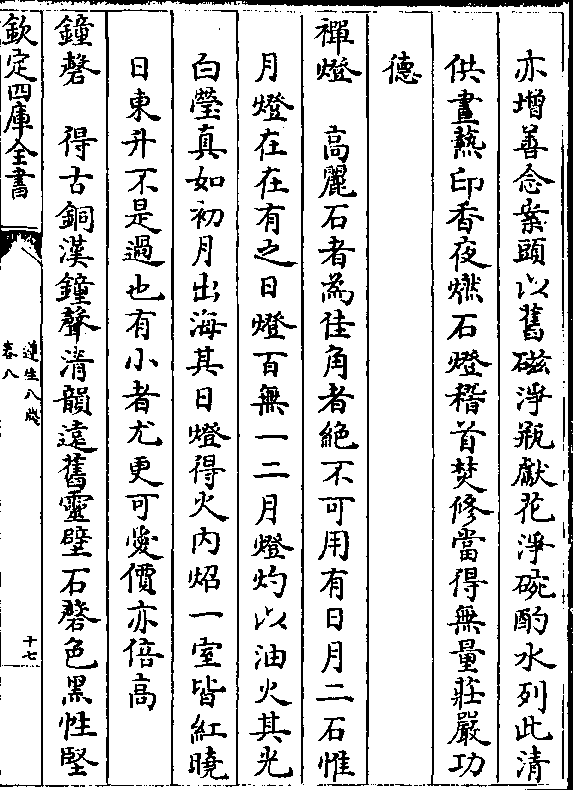 亦增善念案頭以舊磁淨瓶獻花淨碗酌水列此清
供晝爇印香夜燃石燈稽首焚修當得無量莊嚴功
德
禪燈　高麗石者為佳角者絕不可用有日月二石惟
月燈在在有之日燈百無一二月燈灼以油火其光
白瑩真如初月出海其日燈得火內炤一室皆紅曉
日東升不是過也有小者尤更可愛價亦倍高
鐘磬　得古銅漢鐘聲清韻遠舊靈壁石磬色黑性堅
欽定四庫全書
遵生八牋
卷八
十七